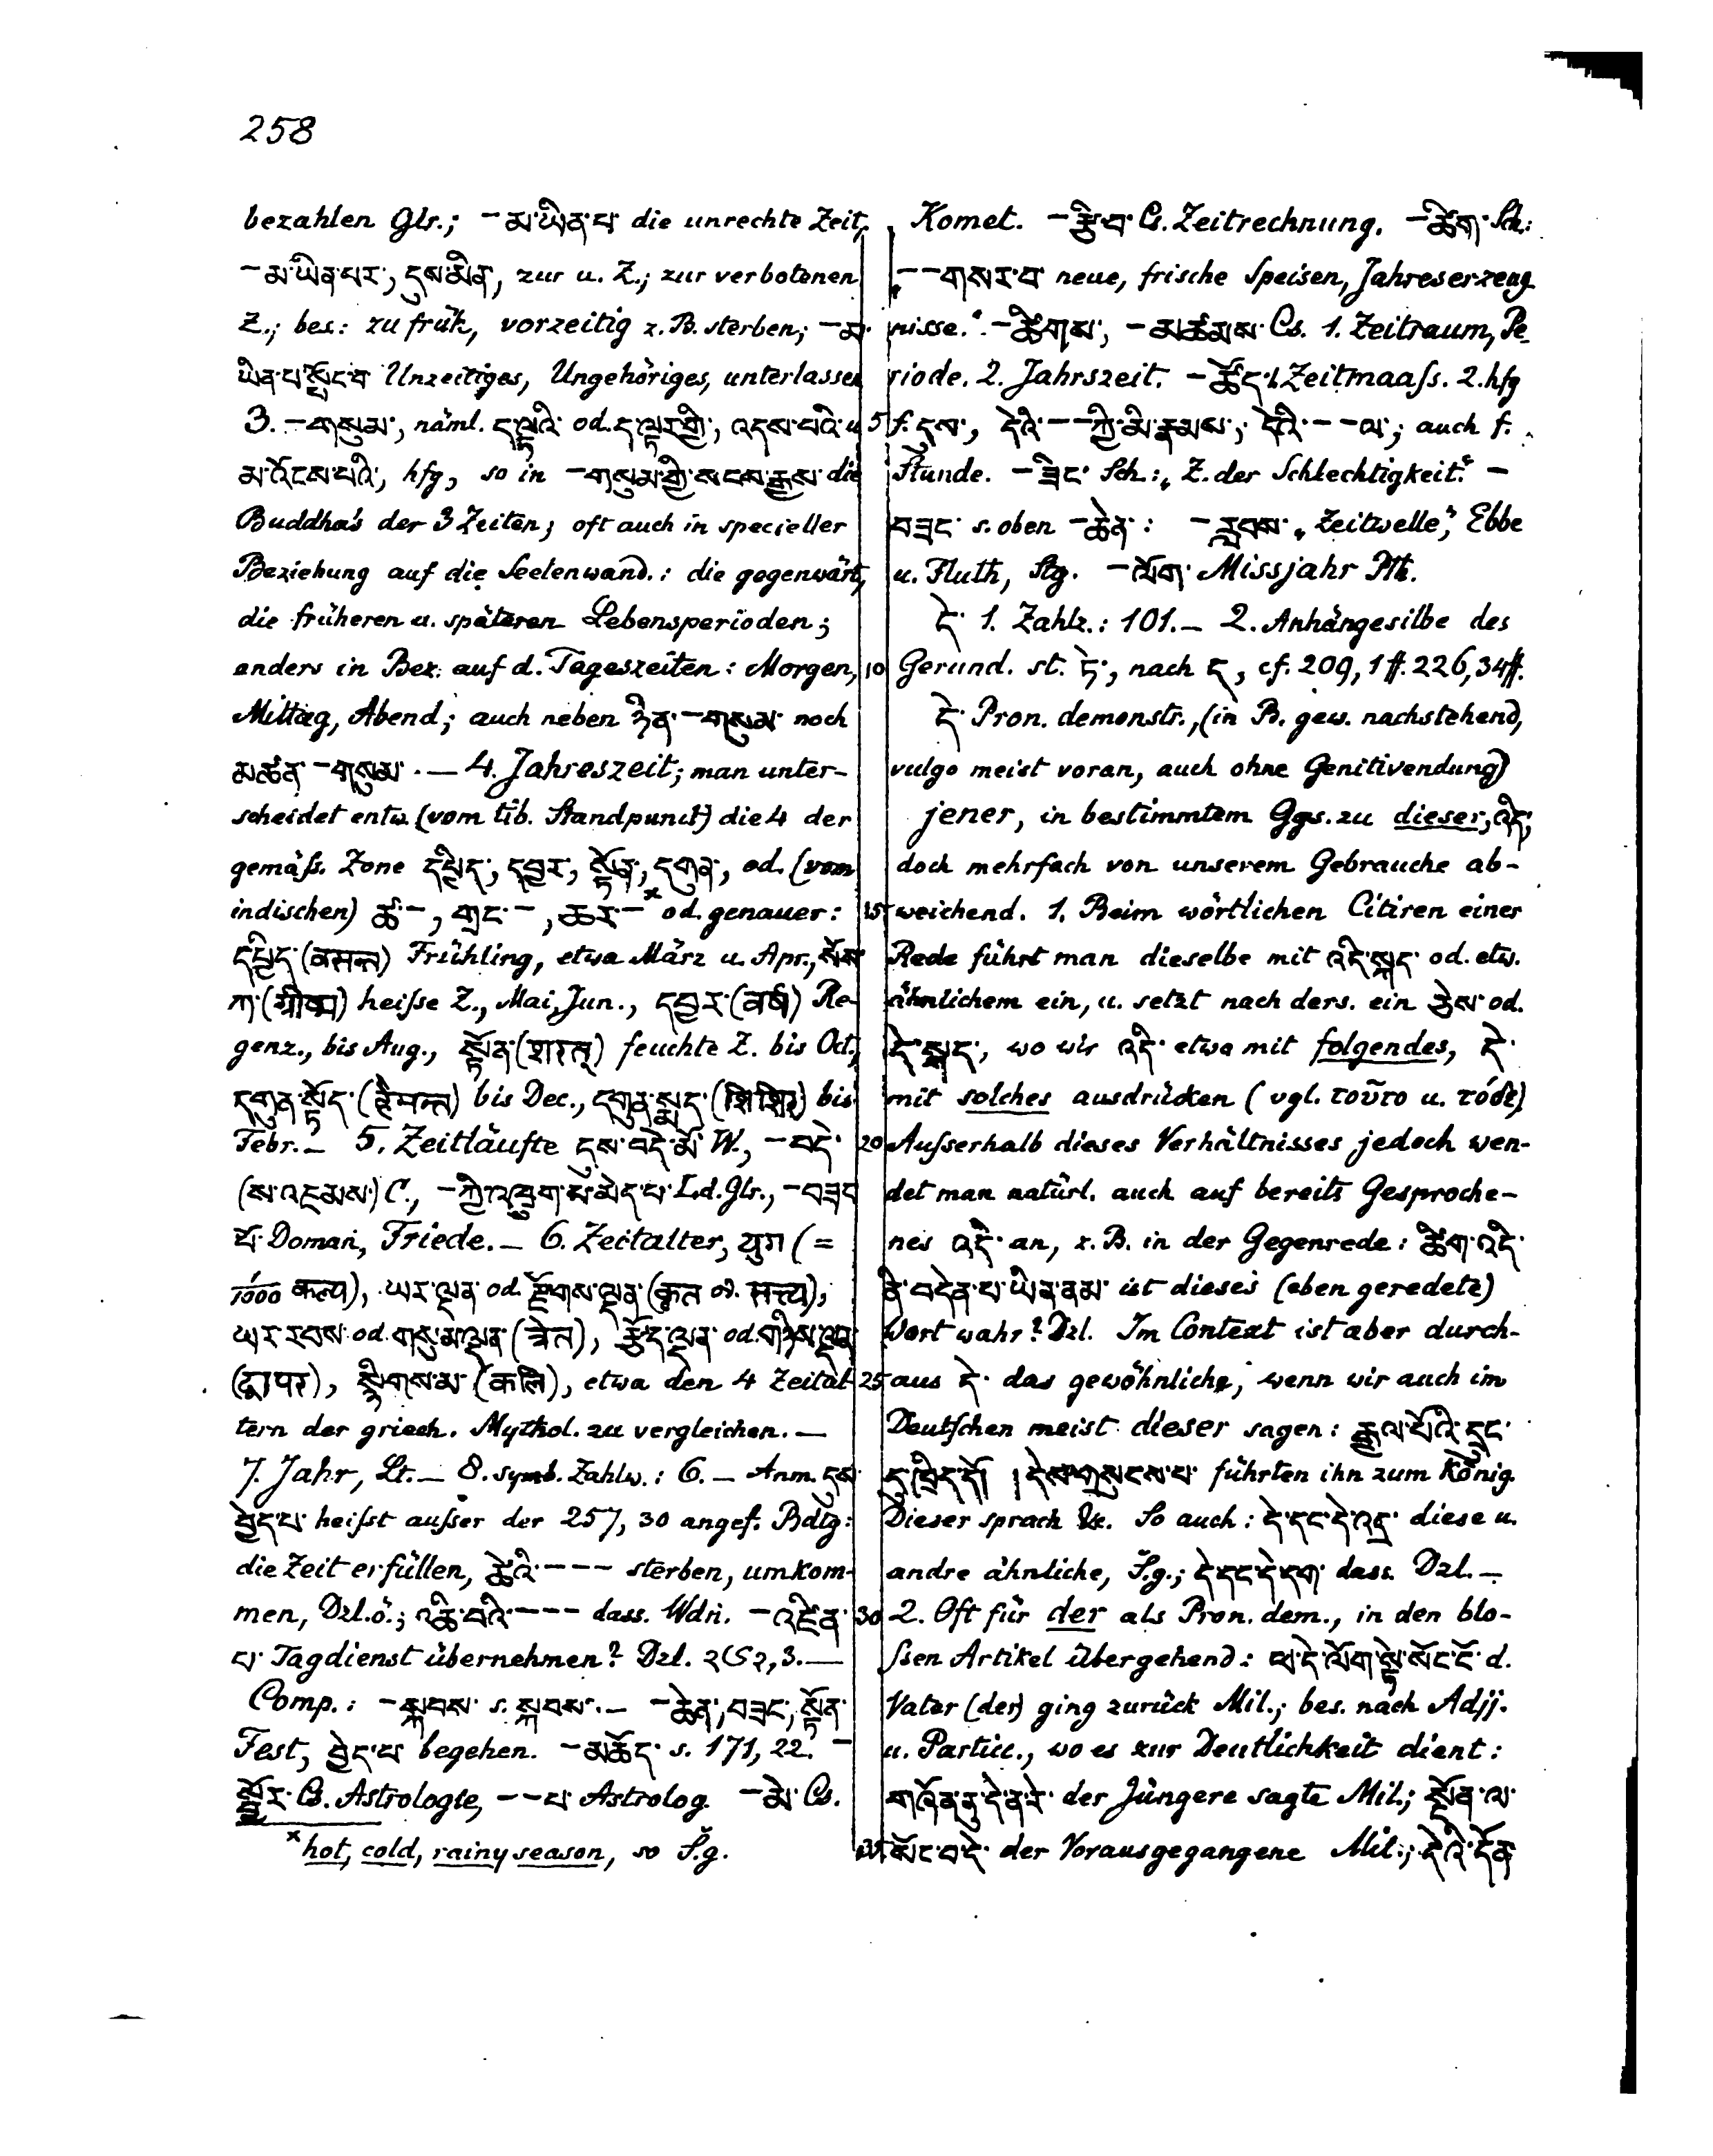 258
bezahlen Glr.; – མ་ཡིན་པ་ die unrechte Zeit,
– མ་ཡིན་པར་, དུས་མིན, zur u. Z.; zur verbotenen
Z.; bes: zu früh, vorzeitig z. B. sterben; – མ་
ཡིན་པ་སྤོང་བ Unzeitiges, Ungehöriges, unterlassen
3. – གསུམ་, näml. ད་ལྟའི་ od. ད་ལྟར་གྱི་, འདས་པའི་ u.
མ་འོངས་པའི་, hfg, so in – གསུམ་གྱི་སངས་རྒྱས་ die
Buddha's der 3 Zeiten; oft auch in specieller
Beziehung auf die Seelenwand.: die gegenwärt,
die früheren u. späteren Lebensperioden;
anders in Bez. auf d. Tageszeiten: Morgen,
Mittag, Abend; auch neben ཉིན་ – གསུམ་ noch
མཚན་ – གསུམ་. — 4. Jahreszeit; man unter-
scheidet entw. (vom tib. Standpunct) die 4 der
gemäss. Zone དཔྱིད་, དབྱར་, སྟོན་, དགུན་, od. (vom
indischen) ཚ་ –, གྲང་ –, ཆར་ – x od. genauer:
དཔྱིད་ (वसन्त) Frühling, etwa März u. Apr., སོས་
ཀ་ (ग्रीष्म) heisse Z., Mai, Jun., དབྱར་ (वर्ष) Re-
genz., bis Aug., སྟོན་ (शरत्) feuchte Z. bis Oct.,
དགུན་སྟོད་ (हेमन्त) bis Dec., དགུན་སྨད་ (शिशिर) bis
Febr. – 5. Zeitläufte དུས་བདེ་མོ་ W., – བདེ་
(ས་འཇམས་) C., – ཀྱི་འཁྲུག་པ་མེད་པ་ Ld. Glr., – བཟང
པོ་ Doman, Friede. – 6. Zeitalter, युग (=
1/1000 कल्प), ཡར་ལྡན་ od. རྫོགས་ལྡན་ (कृत od. सत्त्य),
ཡར་རབས་ od. གསུམ་ལྡན་ (त्रेत), རྩོད་ལྡན་ od. གཉིས་ལྡན་
(द्वापर), སྙིགས་མ་ (कलि), etwa den 4 Zeital-
tern der griech. Mythol. zu vergleichen. —
7. Jahr, Lt. – 8. symb. Zahlw.: 6. – Anm. དུས་
བྱེད་པ་ heisst ausser der 257, 30 angef. Bdtg:
die Zeit erfüllen, ཚེའི་ – – – sterben, umkom-
men, Dzl. ö.; འཆི་བའི་ – – – dass. Wdn. – འཛིན་
པ་ Tagdienst übernehmen? Dzl. ૨૮૨, 3. —
Comp.: – སྐབས་ s. སྐབས་. – – ཆེན་, བཟང་, སྟོན་
Fest, བྱེད་པ་ begehen. – མཆོད་ s. 171, 22. –
སྦྱོར་ Cs. Astrologie, – – པ་ Astrolog. – མེ་ Cs.
x hot, cold, rainy season, so S.g.
Komet. – རྩི་བ་ Cs. Zeitrechnung. – ཚིག་ Sch.:
„– – གསར་བ neue, frische Speisen, Jahreserzeug-
nisse.“ – ཚིགས་, – མཚམས་ Cs. 1. Zeitraum, Pe-
riode. 2. Jahrszeit. – ཚོད་ 1. Zeitmaass. 2. hfg
5 f. དུས་, དེའི་ – – ཀྱི་མི་རྣམས་, དེའི་ – – ལ་; auch f.
Stunde. – ཟིང་ Sch.: „Z. der Schlechtigkeit.“ –
བཟང་ s. oben – ཆེན་: – རླབས་ „Zeitwelle,“ Ebbe
u. Fluth, Stg. – ལོག་ Missjahr Pth.
དེ་ 1. Zahlz.: 101. – 2. Anhängesilbe des
10 Gerund. st. ཏེ་, nach ད, cf. 209, 1 ff. 226, 34 ff.
དེ་ Pron. demonstr., (in B. gew. nachstehend,
vulgo meist voran, auch ohne Genitivendung)
jener, in bestimmtem Ggs. zu dieser, འདི་,
doch mehrfach von unserem Gebrauche ab-
15 weichend. 1. Beim wörtlichen Citiren einer
Rede führt man dieselbe mit འདི་སྐད་ od. etw.
ähnlichem ein, u. setzt nach ders. ein ཅེས་ od.
དེ་སྐད་, wo wir འདི་ etwa mit folgendes, དེ་
mit solches ausdrücken (vgl. τοῦτο u. τόδε)
20 Ausserhalb dieses Verhältnisses jedoch wen-
det man natürl. auch auf bereits Gesproche-
nes འདི་ an, z. B. in der Gegenrede: ཚིག་འདི་
ནི་བདེན་པ་ཡིན་ནམ་ ist dieses (eben geredete)
Wort wahr? Dzl. Im Context ist aber durch-
25 aus དེ་ das gewöhnliche, wenn wir auch im
Deutschen meist dieser sagen: རྒྱལ་པོའི་དྲུང་
དུ་ཁྲིད་དོ། །དེས་གསུངས་པ་ führten ihn zum König.
Dieser sprach &c. So auch: དེ་དང་དེ་འདྲ་ diese u.
andre ähnliche, S.g.; དེ་དང་དེ་དག་ dass. Dzl. —
30 2. Oft für der als Pron. dem., in den blo-
ssen Artikel übergehend: ཕ་དེ་ལོག་སྟེ་སོང་ངོ་ d.
Vater (der) ging zurück Mil.; bes. nach Adjj.
u. Particc., wo es zur Deutlichkeit dient:
གཞོན་ནུ་དེ་ན་རེ་ der Jüngere sagte Mil.; སྔོན་ལ་
35 སོང་བ་དེ་ der Vorausgegangene Mil.; དེའི་དོན